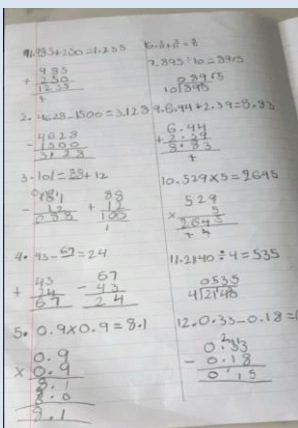 1. 985+250=1,235
985
+ 250
1235
+
2. 4628-1500=3,128
4628
- 1500
3128
3. 101=89+12
101
- 12
089
88
+ 12
100
1
4. 43-67=24
43
+ 24
67
67
- 43
24
5. 0.9×0.9=8.1
0.9
× 0.9
8.1
8.0
8.1
7. 895÷10=89.5
089.5
10/895
9. 6.44+2.39=8.83
6.44
+ 2.39
8.83
+
10. 529×5=2645
529
× 5
2645
11. 2140÷4=535
0535
4/2140
12. 0.33-0.18=
0.33
- 0.18
0.15